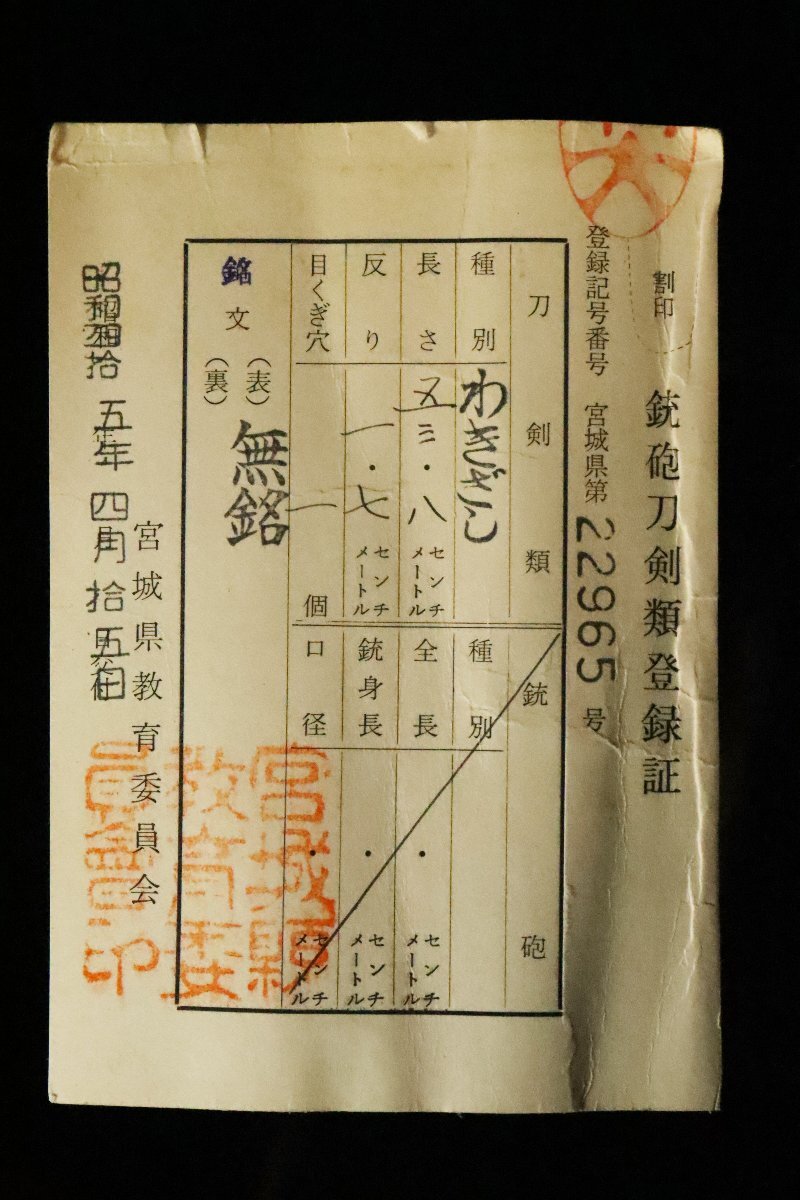 銃砲刀剣類登録証
割印
登録記号番号 宮城県第22965号
刀剣類
種別 わきざし
長さ 五三・八 センチメートル
反り 一・七 センチメートル
目くぎ穴 一 個
銘文 (表) 無銘
(裏)
銃砲
種別
全長 ・ センチメートル
銃身長 ・ センチメートル
口径 ・ センチメートル
五年四月拾五日
宮城県教育委員会
宮城縣
教育委
員會印